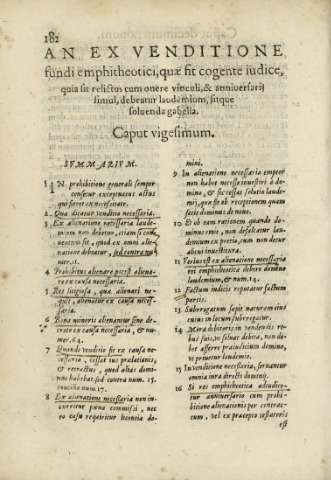 182
AN EX VENDITIONE
fundi emphitheotici, quæ fit cogente iudice,
quia sit relictus cum onere vinculi, & anniuersarij
simul, debeatur laudemium, sitque
soluenda gabella.
Caput vigesimum.
SVMMARIVM.
1 IN prohibitione generali semper
censetur exceptuatus actus
qui fieret ex necessitate.
2 Qua dicatur venditio necessaria.
3 Ex alienatione necessaria laudemium
non debetur, etiam si conuentum
sit, quod ex omni alienatione
debeatur, sed contra numer.
4 Prohibitus alienare potest alienare
ex causa necessaria.
5 Res litigiosa, qua alienari nequit,
alienatur ex causa necessaria.
6 Bona minoris alienantur sine decreto
ex causa necessaria, & numer. 64.
7 Quando venditio fit ex causa necessaria,
cessat ius prælationis,
& retractus, quod aliàs dominus
habebat, sed contra num. 15.
8 Ex alienatione necessaria non incurritur
pœna commissi, nec
eo casu requiritur licentia domini.
9 In alienatione necessaria emptor
non habet necesse inuestiri à domino,
& sic cessat solutio laudemij,
quæ fit ob receptionem quam
facit dominus de nouo.
10 & ob eam rationem quando dominus
renuit, non defalcatur laudemium
ex pretio, cum non detur
aliqua inuestitura.
11 Verius est ex alienatione necessaria
rei emphitheotica deberi domino
laudemium, & num. 14.
12 Factum iudicis reputatur factum
partis.
13 Subrogatum sapit naturam eius
cuius in locum subrogatur.
14 Mora debitoris in vendendis rebus
suis, vt soluat debita, non debet
afferre præiudicium domino,
vt priuetur laudemio.
15 In venditione necessaria, seruantur
omnia iura directi domini.
16 Si rei emphitheotica adiudicetur
anniuersario cum prohibitione
alienationis per contractum,
vel ex præcepto testatoris
est